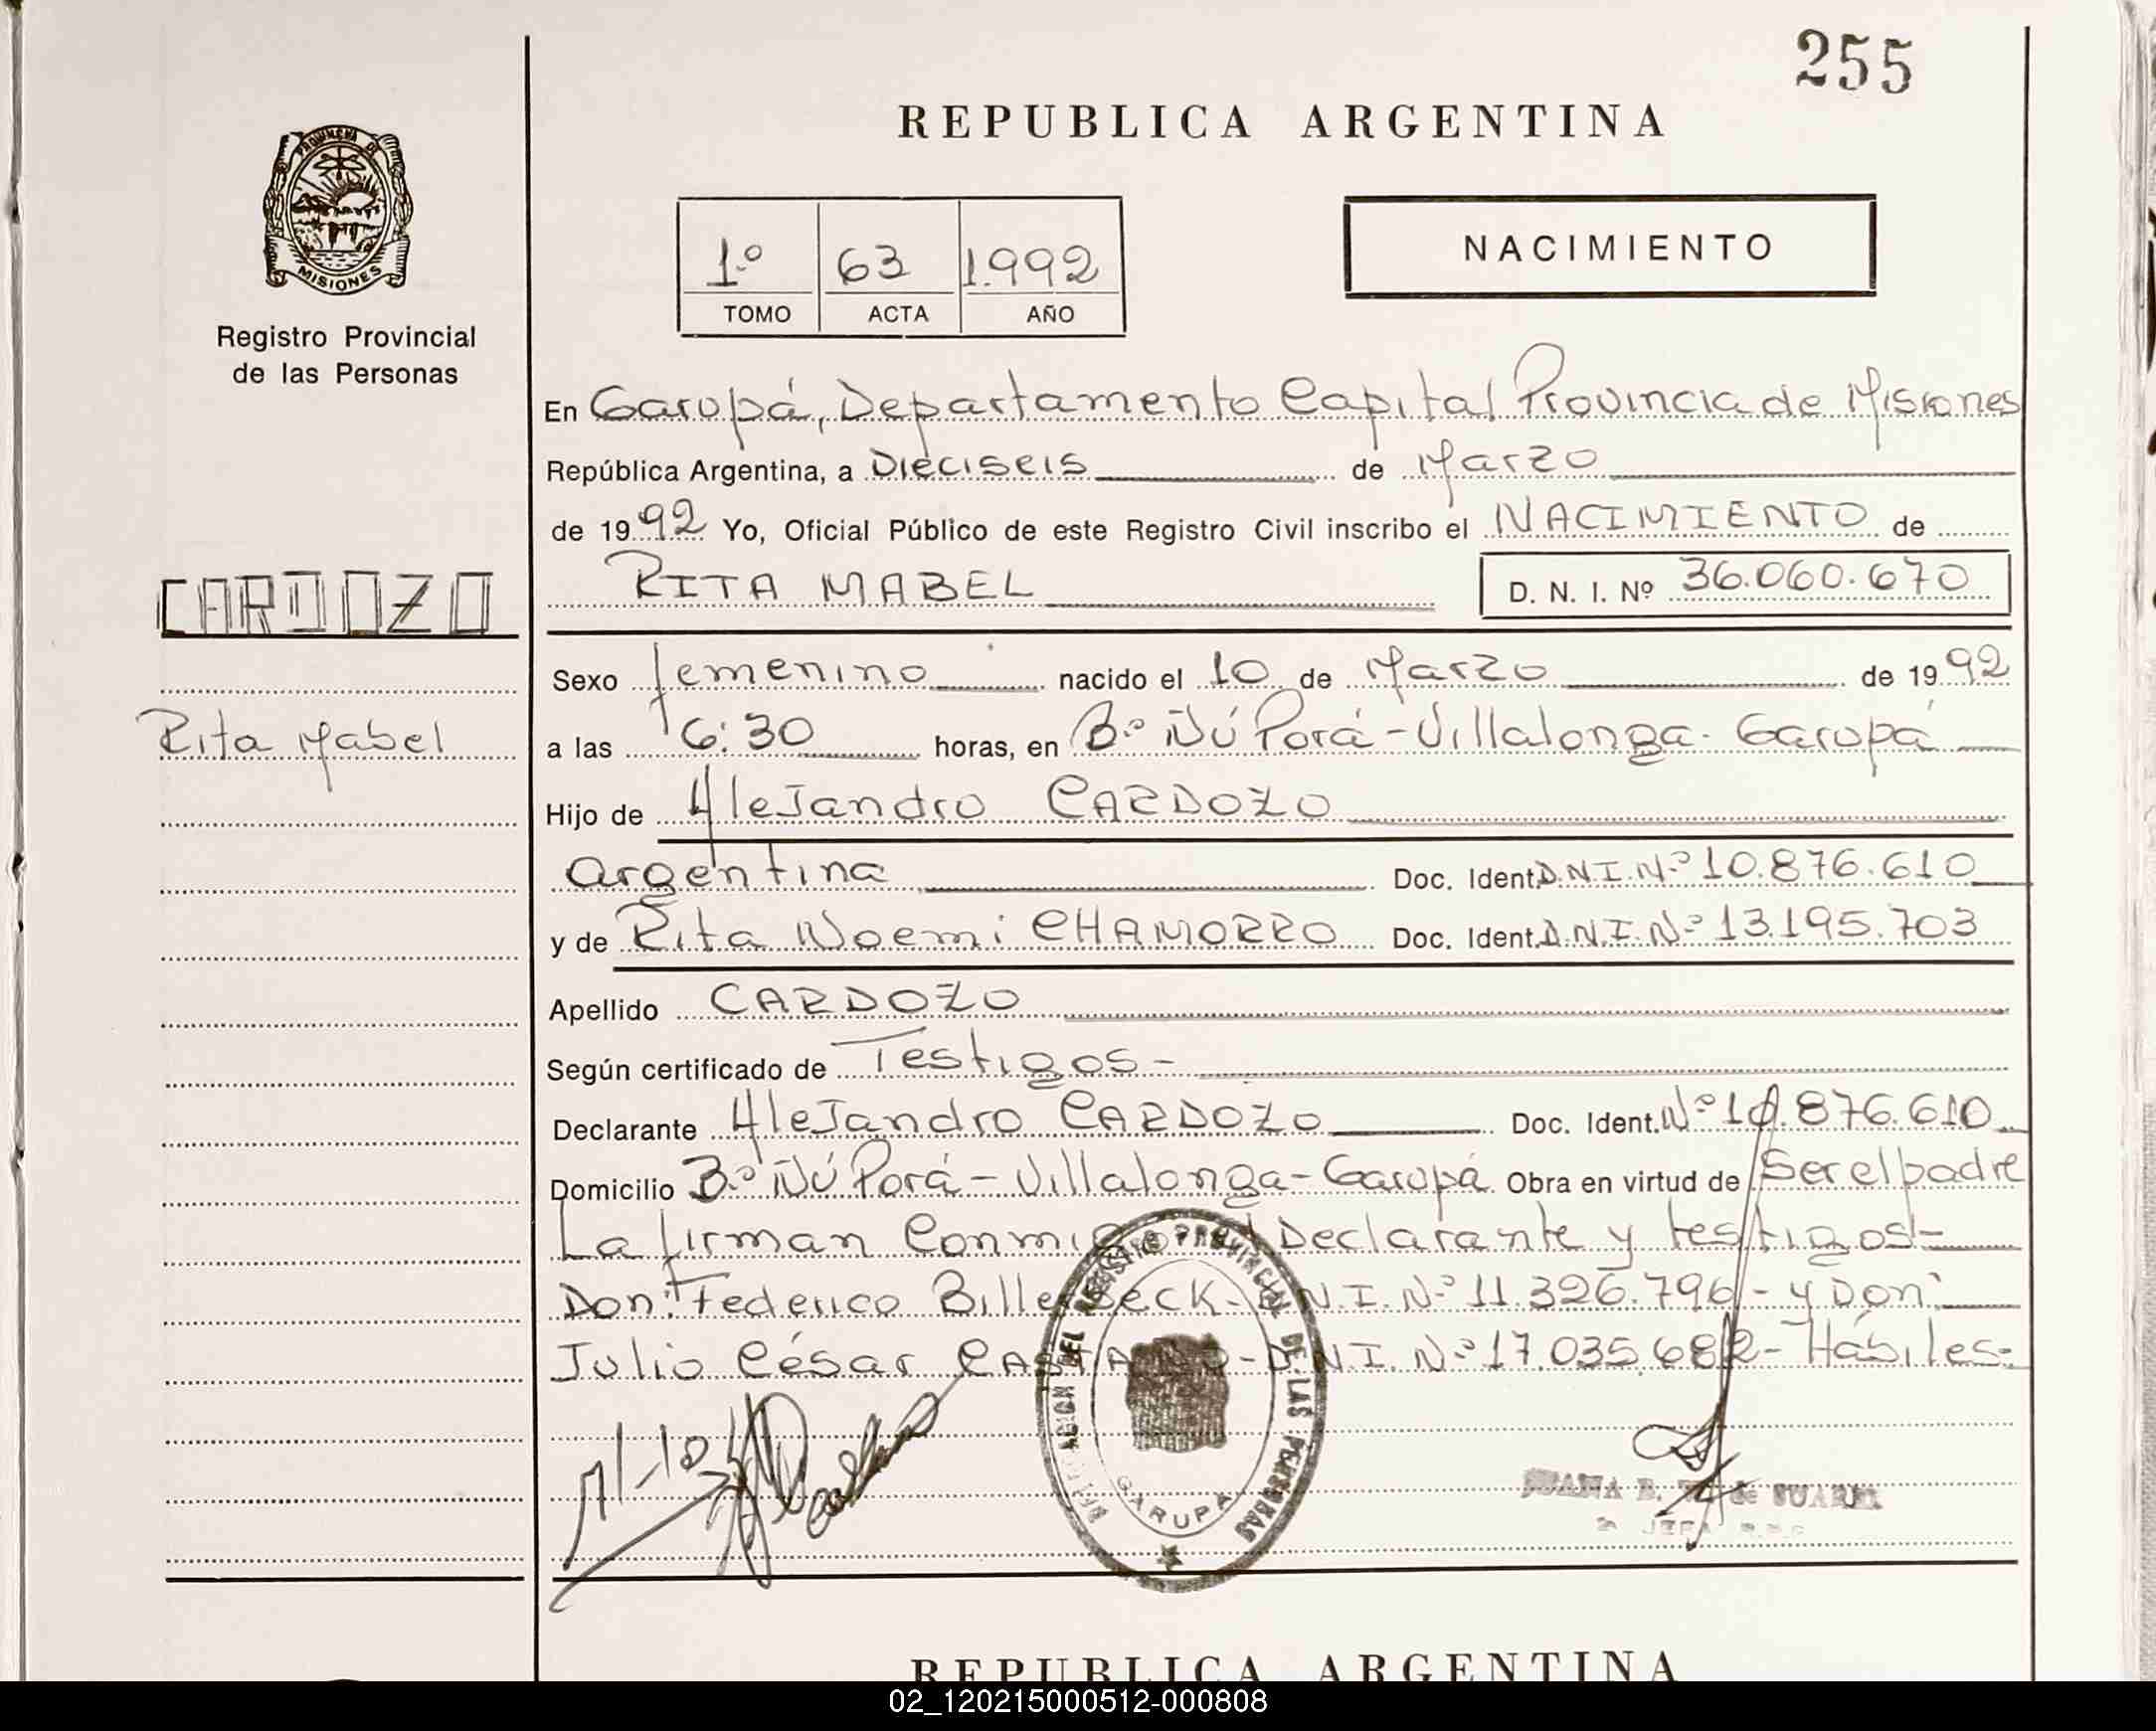 255
REPUBLICA ARGENTINA
PROVINCIA DE
MISIONES
Registro Provincial
de las Personas
1º 63 1.992
TOMO ACTA AÑO
NACIMIENTO
En Garupá, Departamento Capital Provincia de Misiones
República Argentina, a Dieciseis de Marzo
de 1992 Yo, Oficial Público de este Registro Civil inscribo el NACIMIENTO de
RITA MABEL D. N. I. Nº 36.060.670
CARDOZO
Sexo femenino nacido el 10 de Marzo de 1992
Rita Mabel
a las 6:30 horas, en Bº Ñú Porá - Villalonga. Garupá
Hijo de Alejandro CARDOZO
argentina Doc. Ident. D.N.I. Nº 10.876.610
y de Rita Noemi CHAMORRO Doc. Ident. D.N.I. Nº 13.195.703
Apellido CARDOZO
Según certificado de Testigos -
Declarante Alejandro CARDOZO Doc. Ident. Nº 10.876.610
Domicilio Bº Ñú Porá - Villalonga - Garupá Obra en virtud de Ser el padre
La firman Conmigo el Declarante y testigos -
Don: Federico D.N.I. Nº 11.326.796 - y Don:
Julio César D.N.I. Nº 17.035.682 - Hábiles.
DEL REGISTRO PROVINCIAL DE LAS PERSONAS
GARUPA
de SUAREZ
JEFA
REPUBLICA ARGENTINA
02_120215000512-000808